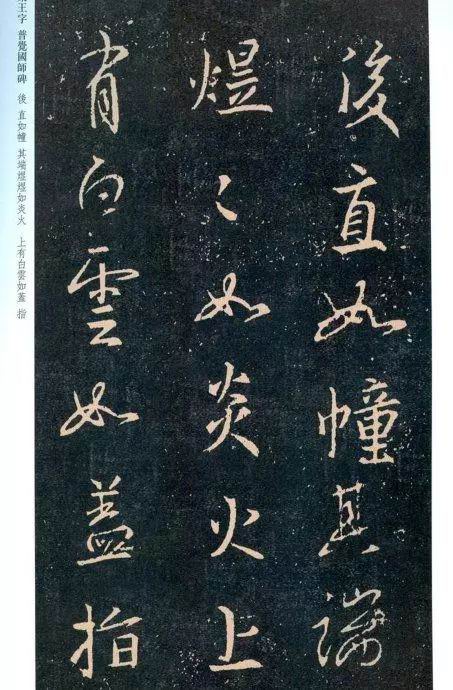 後直如幢其端
煜〻如炎火上
有白雲如蓋指
王字 普覺國師碑 後 直如幢 其端煜煜如炎火 上有白雲如蓋 指